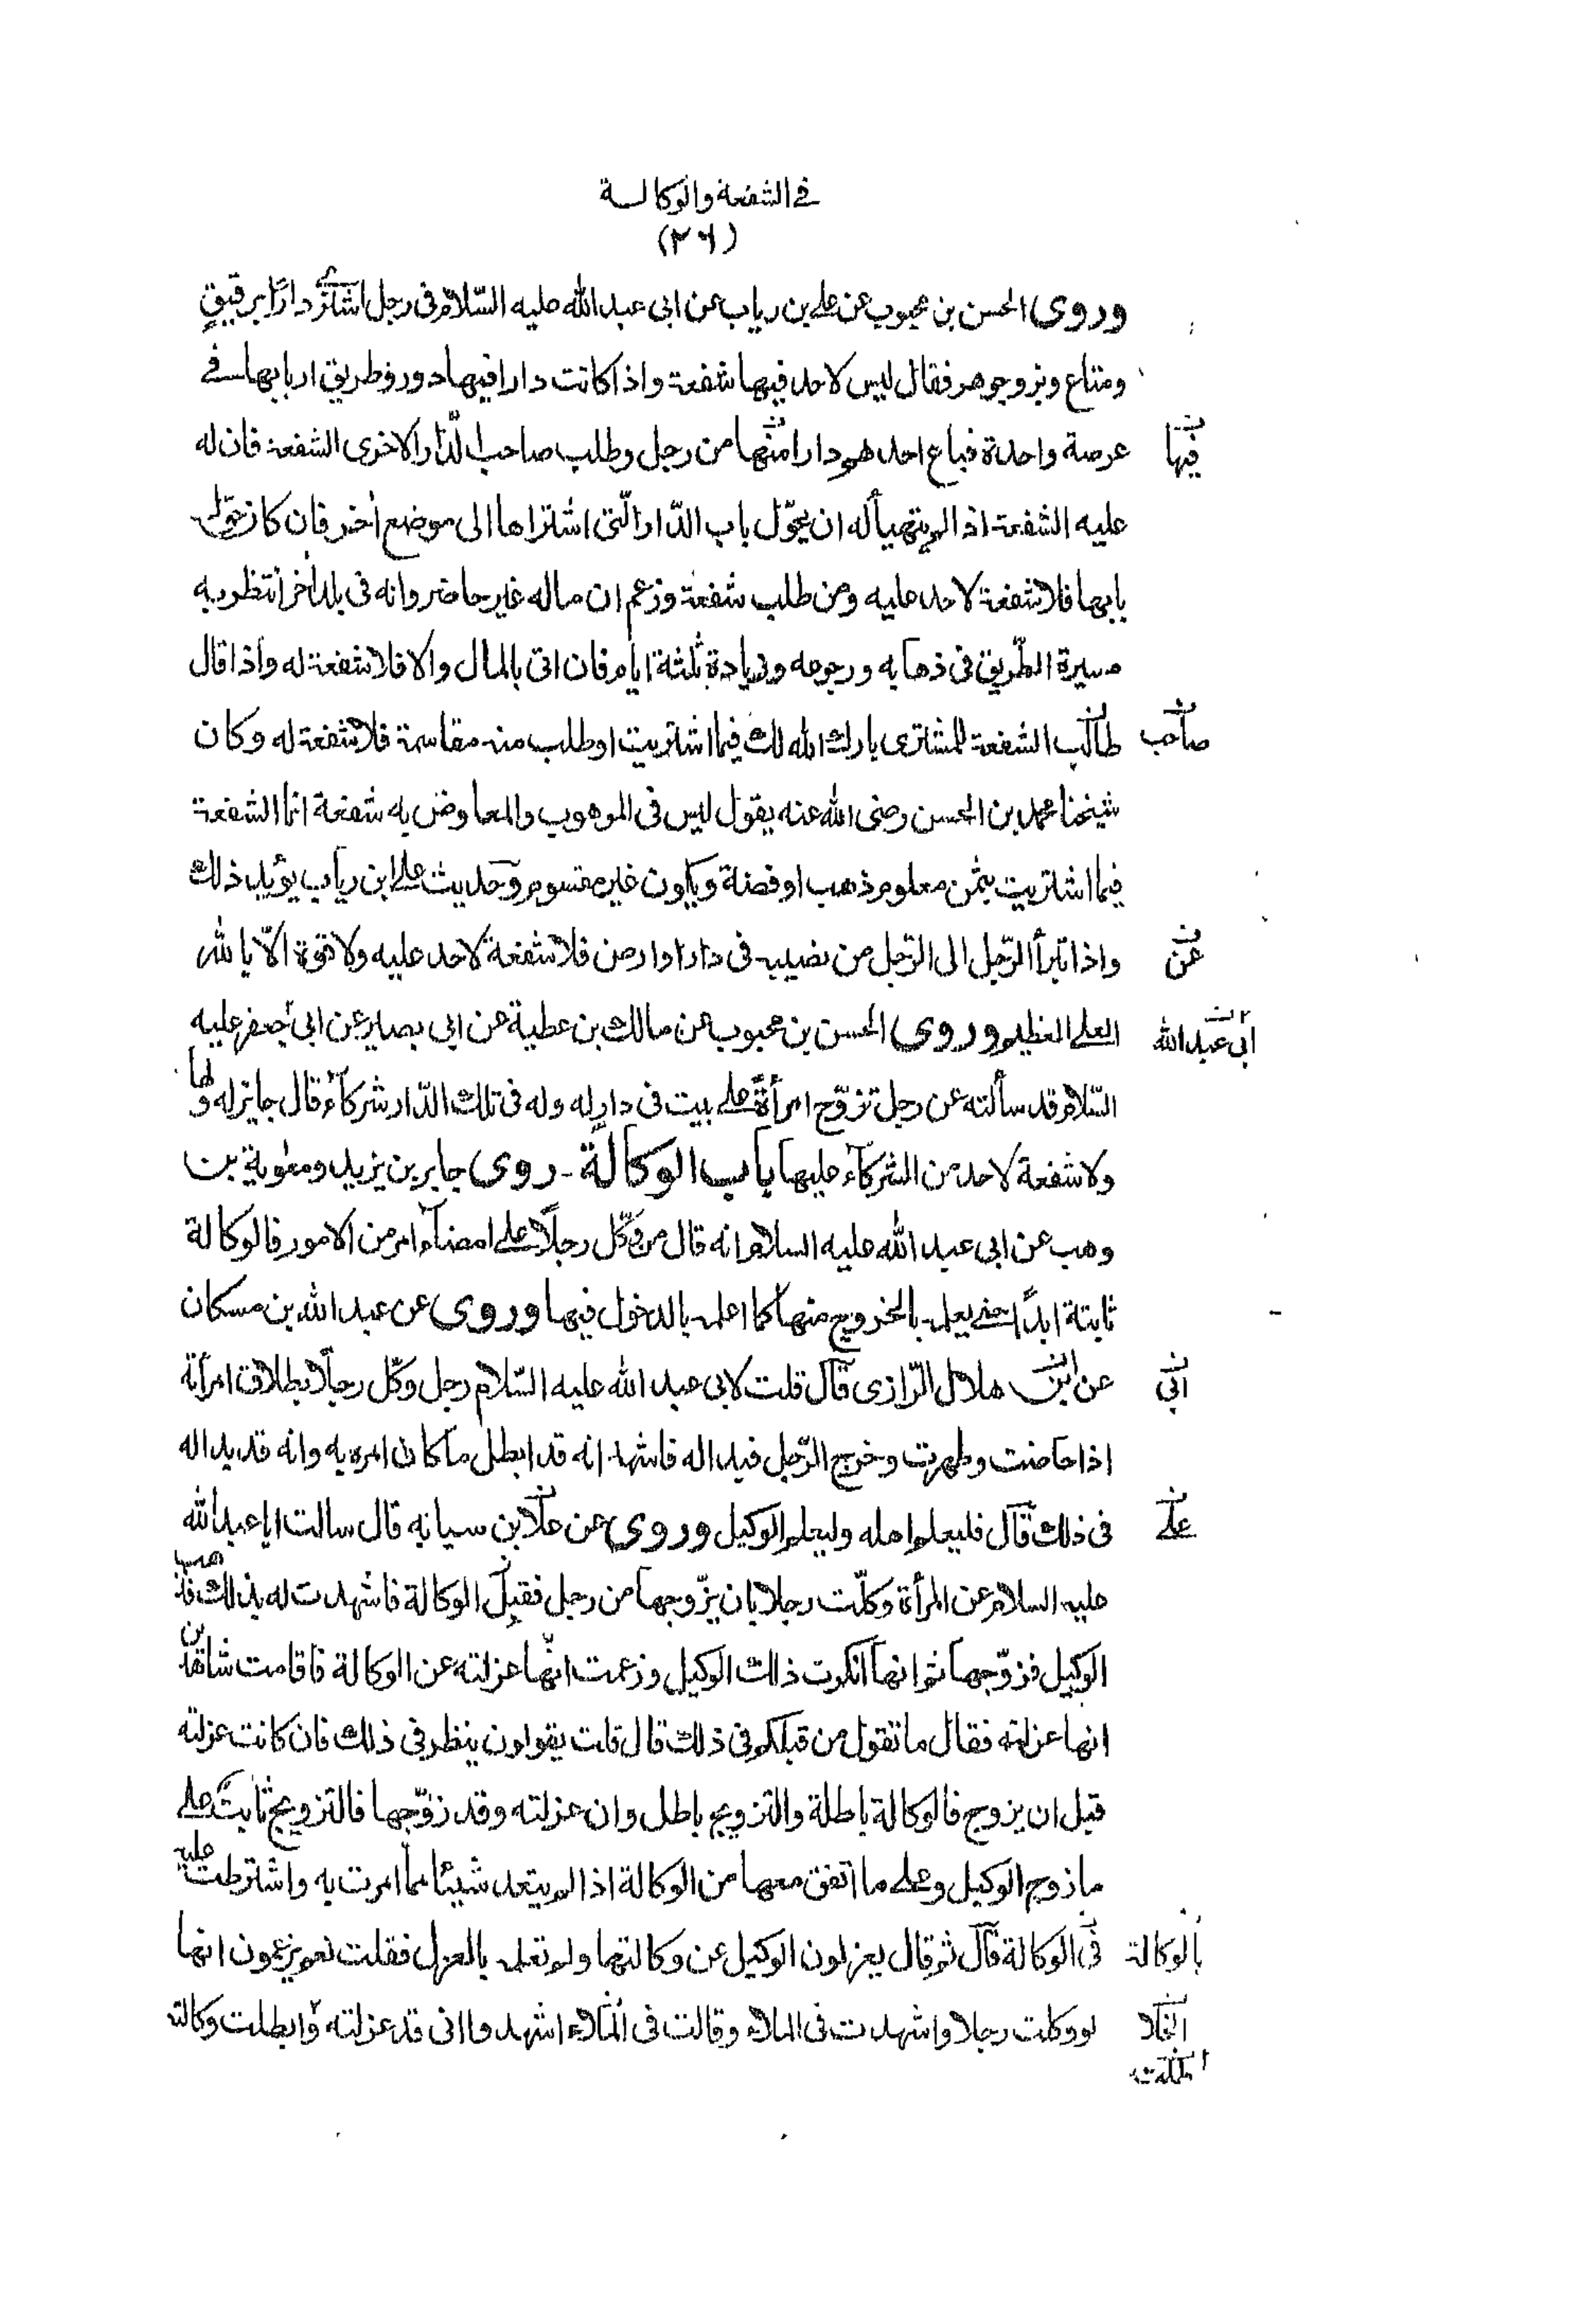 في الشفعة والوكالسة
(٢٦)
وروى الحسن بن محبوب عن علي بن رياب عن ابى عبد الله عليه السّلام فى رجل اشترى دارًا برقيقٍ
ومتاع وبز وجوهر فقال ليس لاحد فيها شفعة واذا كانت دارا فيها دور وطريق اربابها في
عرصة واحدة فباع احدهم دارا منها من رجل وطلب صاحب الدّار الاخرى الشفعة فان له
فيها
عليه الشفعة اذا لم يتهيأ له ان يحوّل باب الدّار الّتى اشتراها الى موضع اخر فان كان حوّل
بابها فلا شفعة لاحد عليه ومن طلب شفعة وزعم ان ماله غير حاضر وانه فى بلد اخر انتظر به
مسيرة الطّريق فى ذهابه ورجوعه وزيادة ثلثة ايام فان اتى بالمال والا فلا شفعة له واذا قال
طالب الشفعة للمشترى بارك الله لك فيما اشتريت او طلب منه مقاسمة فلا شفعة له وكان
صاحب
شيخنا محمد بن الحسن رضى الله عنه يقول ليس فى الموهوب والمعاوض به شفعة انما الشفعة
فيما اشتريت بثمن معلوم ذهب او فضة ويكون غير مقسوم وحديث علي ابن رياب يؤيد ذلك
واذا تبرأ الرّجل الى الرّجل من نصيبه فى دار او ارض فلا شفعة لاحد عليه ولا قوة الّا بالله
عن
العلي العظيم وروى الحسن بن محبوب عن مالك بن عطية عن ابى بصير عن ابى جعفر عليه
ابى عبد الله
السّلام قد سألته عن رجل تزوّج امرأةً علي بيت فى دارٍ له وله فى تلك الدّار شركاء قال جايز له ولها
ولا شفعة لاحد من الشركاء عليها باب الوكالة - روى جابر بن يزيد ومعوية بن
وهب عن ابى عبد الله عليه السلام انه قال من وكّل رجلًا علي امضاء امر من الامور فالوكالة
ثابتة ابدًا حتي يعلمه بالخروج منها كما اعلمه بالدخول فيها وروى عن عبد الله بن مسكان
عن ابن هلال الرّازى قال قلت لابى عبد الله عليه السّلام رجل وكّل رجلًا بطلاق امرأته
ابى
اذا حاضت وطهرت وخرج الرّجل فبدا له فاشهد انه قد ابطل ما كان امره به وانه قد بدا له
فى ذلك قال فليعلم اهله وليعلم الوكيل وروى عن علا بن سيابه قال سالت ابا عبد الله
علي
عليه السلام عن المرأة وكّلت رجلا بان يزّوجها من رجل فقبل الوكالة فاشهدت له بذلك فذهب
الوكيل فزوّجها ثم انها انكرت ذلك الوكيل وزعمت انّها عزلته عن الوكالة فاقامت شاهدين
انها عزلته فقال ما تقول من قبلكم فى ذلك قال قلت يقولون ينظر فى ذلك فان كانت عزلته
قبل ان يزوج فالوكالة باطلة والتزويج باطل وان عزلته وقد زوّجها فالتزويج ثابت علي
ما زوج الوكيل وعلي ما اتفق معها من الوكالة اذا لم يتعد شيئا مما امرت به واشترطت عليه
فى الوكالة قال ثم قال يعزلون الوكيل عن وكالتها ولم تعلمه بالعزل فقلت نعم يزعمون انها
بالوكالة
لو وكلت رجلا واشهدت فى الملاء وقالت فى الملاء اشهدوا انى قد عزلته وابطلت وكالته
الخلا